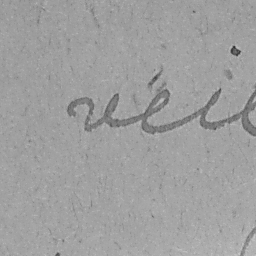 véil